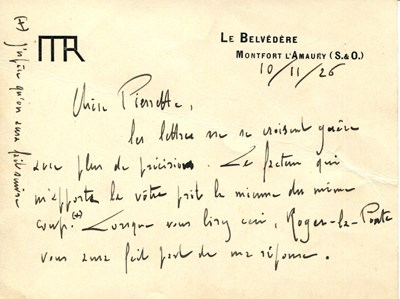 MR
LE BELVÉDÈRE
MONTFORT L'AMAURY (S.&O.)
10/11/26
Chère Pierrette,
les lettres ne se croisent guère
avec plus de précision. Le facteur qui
m'apporta la vôtre prit la mienne du même
coup.(+) Lorsque vous lirez ceci, Roger-la-Poste
vous aura fait part de ma réponse.
(+) J'espère qu'on aura fait suivre